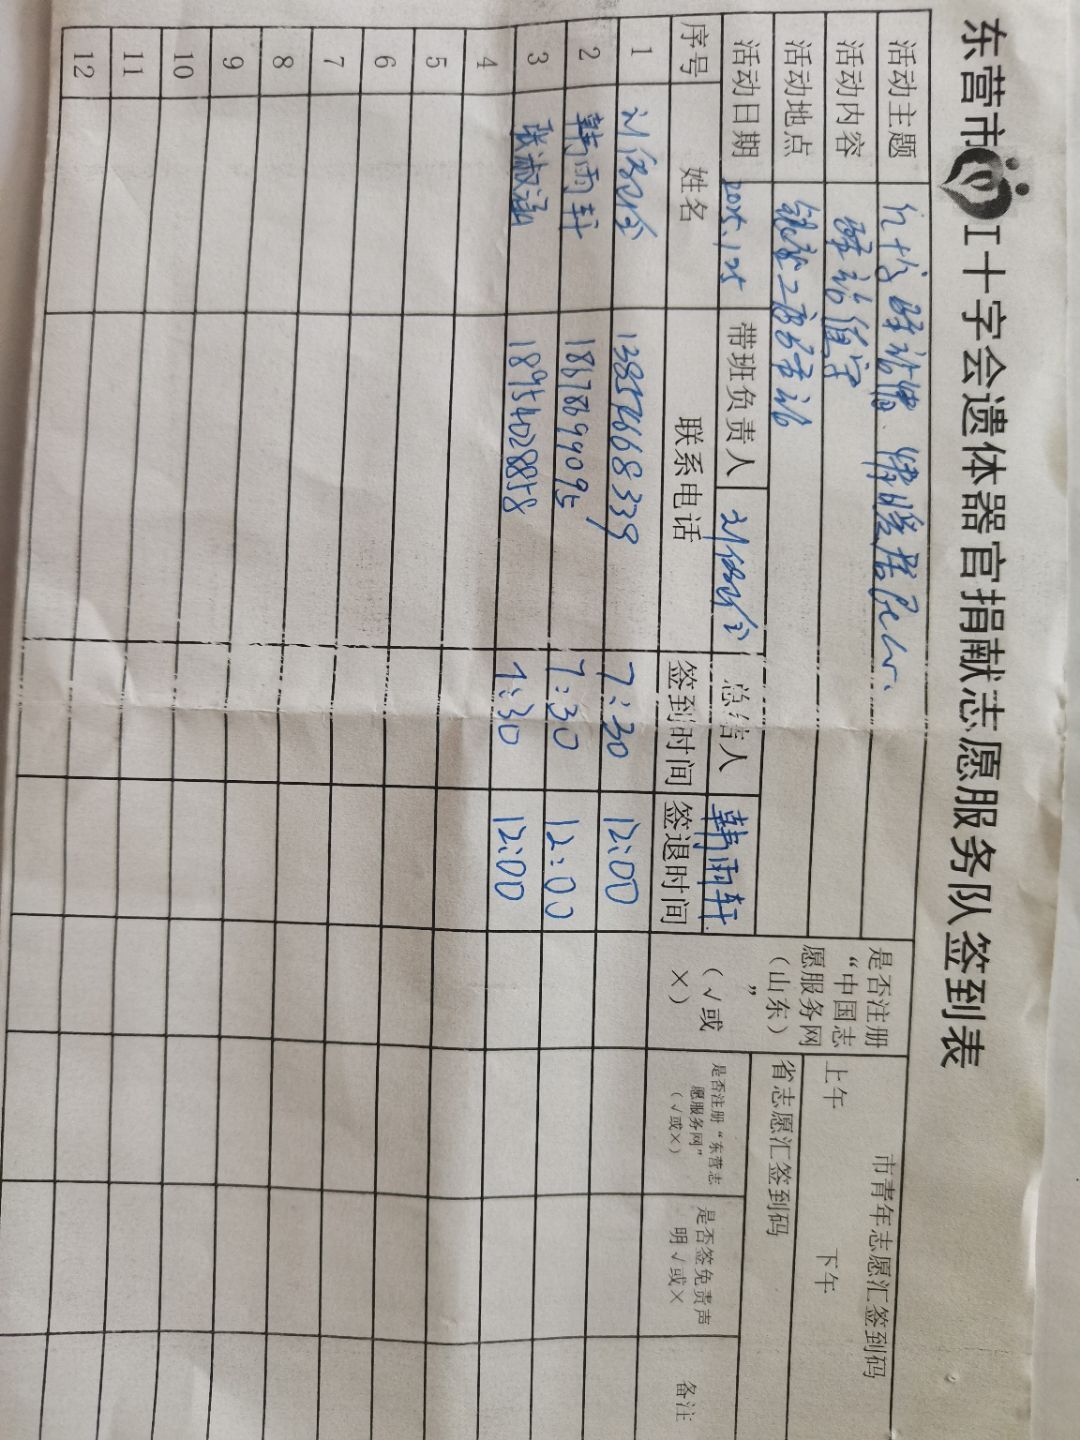 东营市红十字会遗体器官捐献志愿服务队签到表
活动主题
活动内容 驿站值守
活动地点
活动日期 带班负责人 总结人 韩雨轩
是否注册“中国志愿服务网（山东）”（√或×）
市青年志愿汇签到码
上午 下午
省志愿汇签到码
序号 姓名 联系电话 签到时间 签退时间 是否注册“东营志愿服务网”（√或×） 是否签免责声明√或× 备注
1 7:30 12:00
2 韩雨轩 18678699095 7:30 12:00
3 张淑涵 18954028858 7:30 12:00
4
5
6
7
8
9
10
11
12